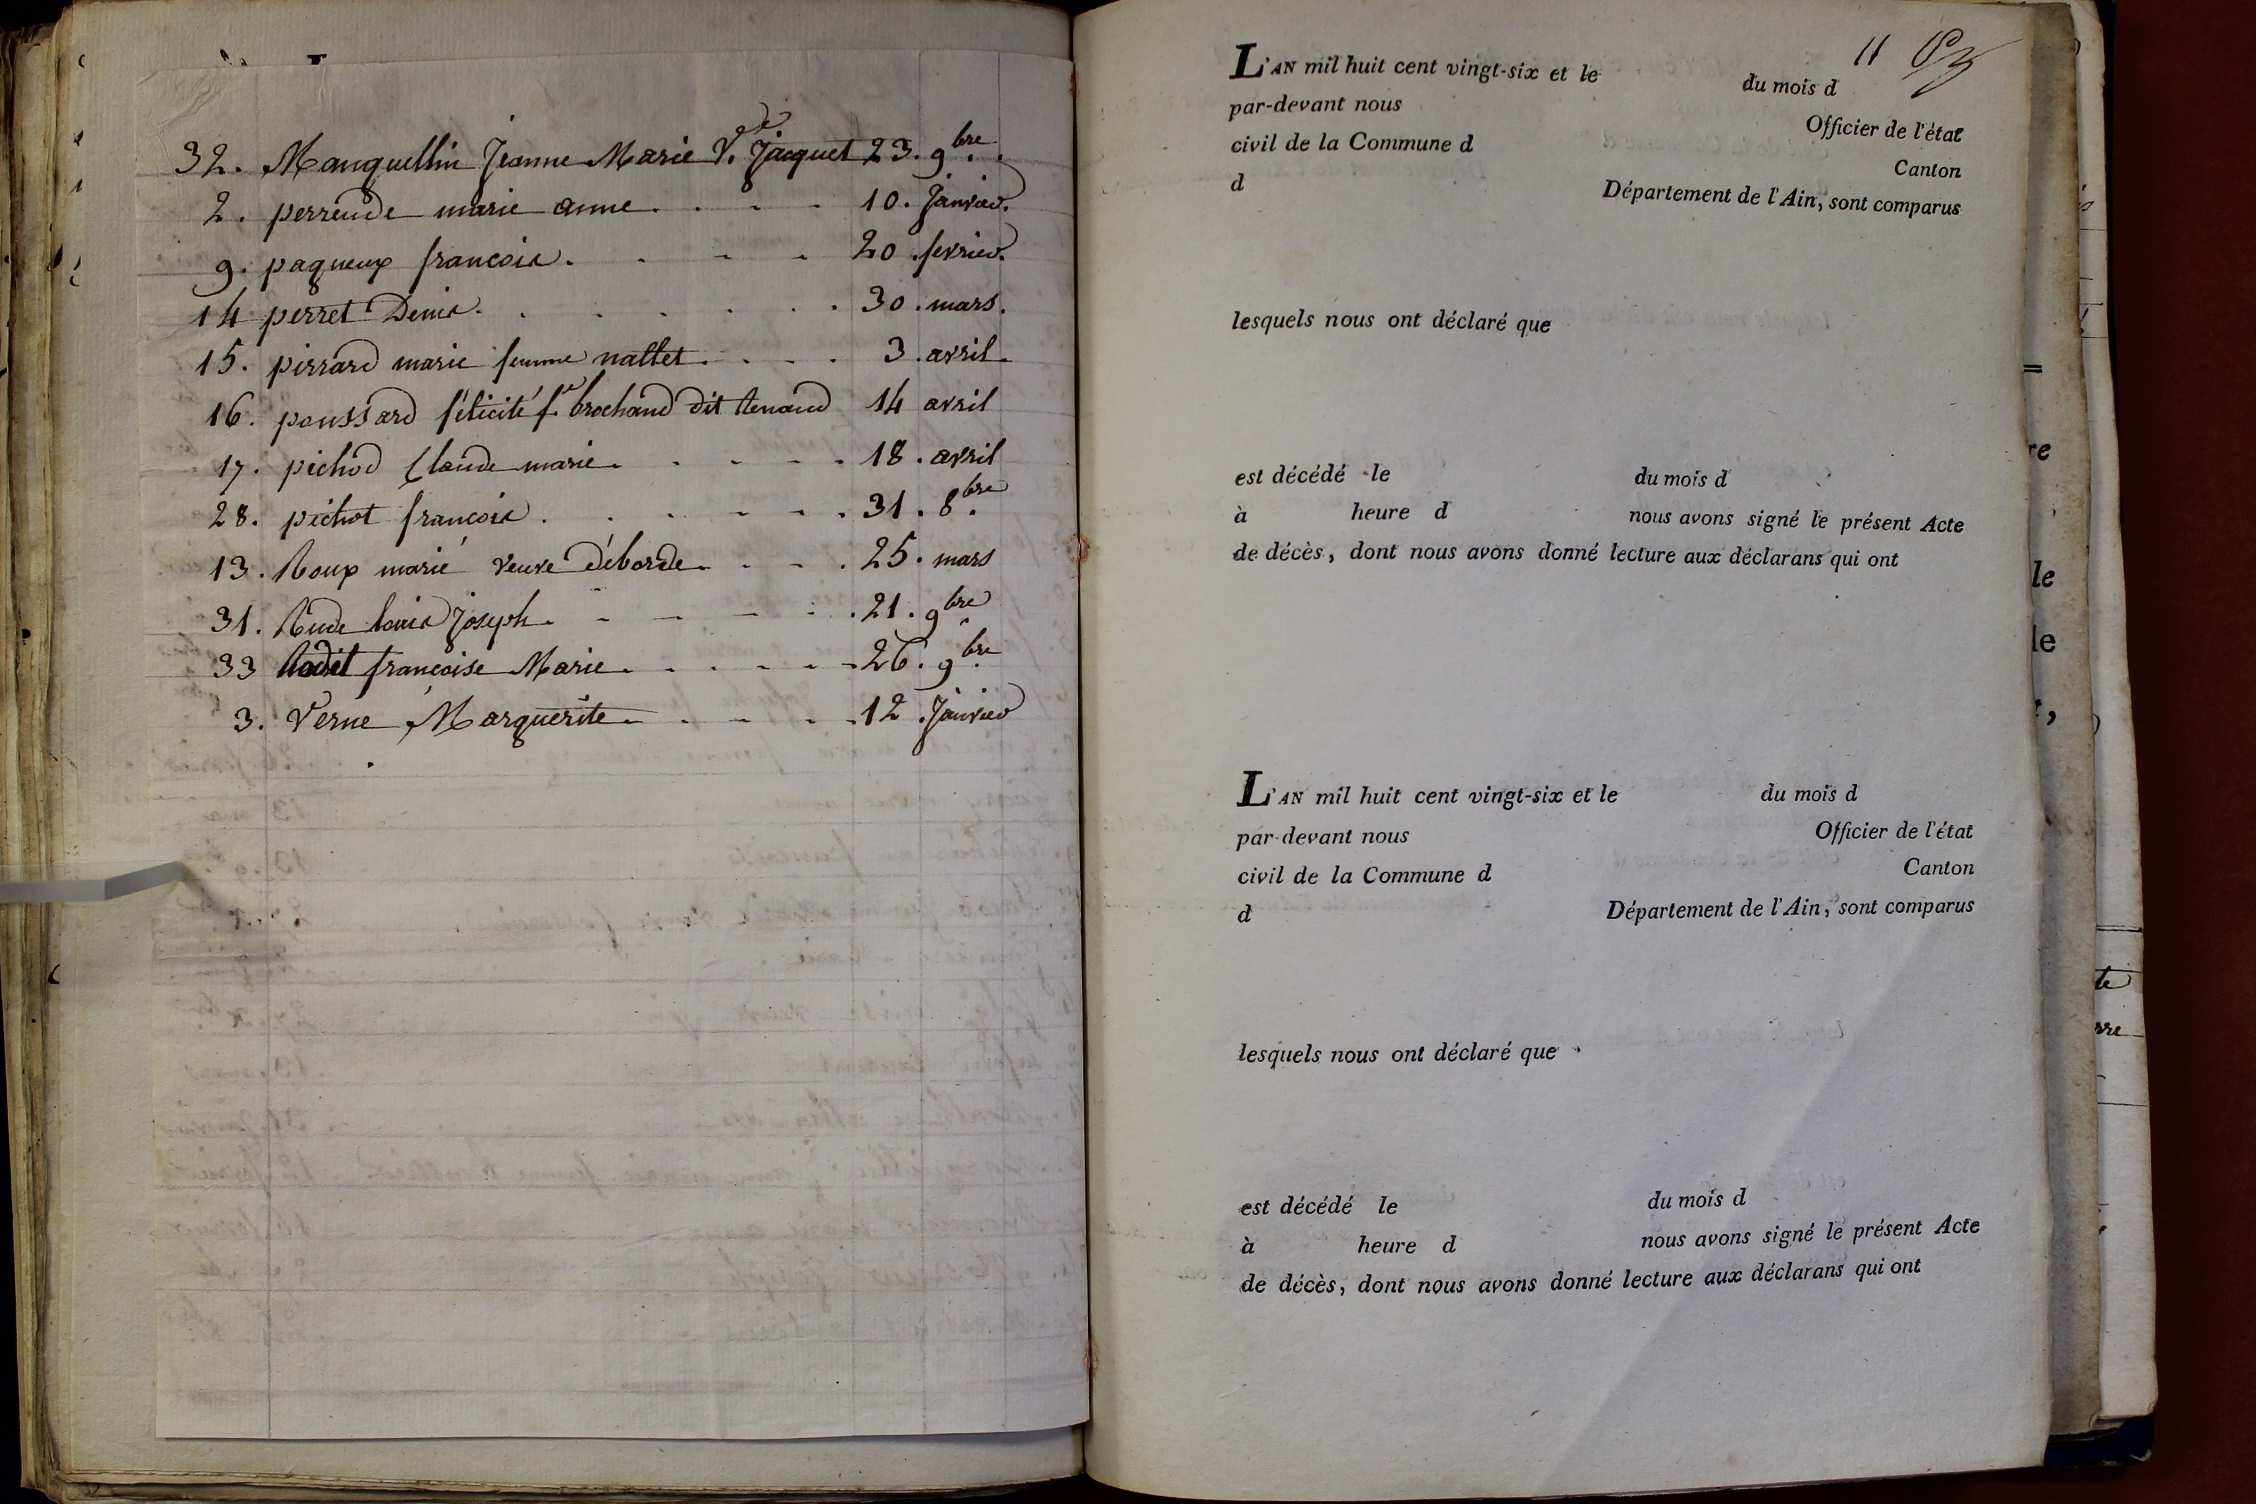 32. Manquellin Jeanne Marie Ve. Jacquet 23. 9bre.
2. perrende marie anne. . . . 10. Janvier.
9. paqueux francois. . . . 20. fevrier.
14 perret Denis. . . . . . . 30. mars.
15. pirrard marie femme nallet. . . . 3. avril.
16. poussard félicité fe brochand dit Renaud 14 avril
17. pichod Claude marie. . . . . 18. avril
28. pichot francois . . . . . . 31. 8bre.
13. Roux marie veuve Déborde. . . . 25. mars
31. Rude louis Joseph. . . . . . 21. 9bre
33 Rodet francoise Marie. . . . . . 26. 9bre.
3. Verne Marguerite. . . . . 12. Janvier
11
L'AN mil huit cent vingt-six et le du mois d
par-devant nous Officier de l'état
civil de la Commune d Canton
d Département de l'Ain, sont comparus
lesquels nous ont déclaré que
est décédé le du mois d
à heure d nous avons signé le présent Acte
de décès, dont nous avons donné lecture aux déclarans qui ont
L'AN mil huit cent vingt-six et le du mois d
par-devant nous Officier de l'état
civil de la Commune d Canton
d Département de l'Ain, sont comparus
lesquels nous ont déclaré que
est décédé le du mois d
à heure d nous avons signé le présent Acte
de décès, dont nous avons donné lecture aux déclarans qui ont